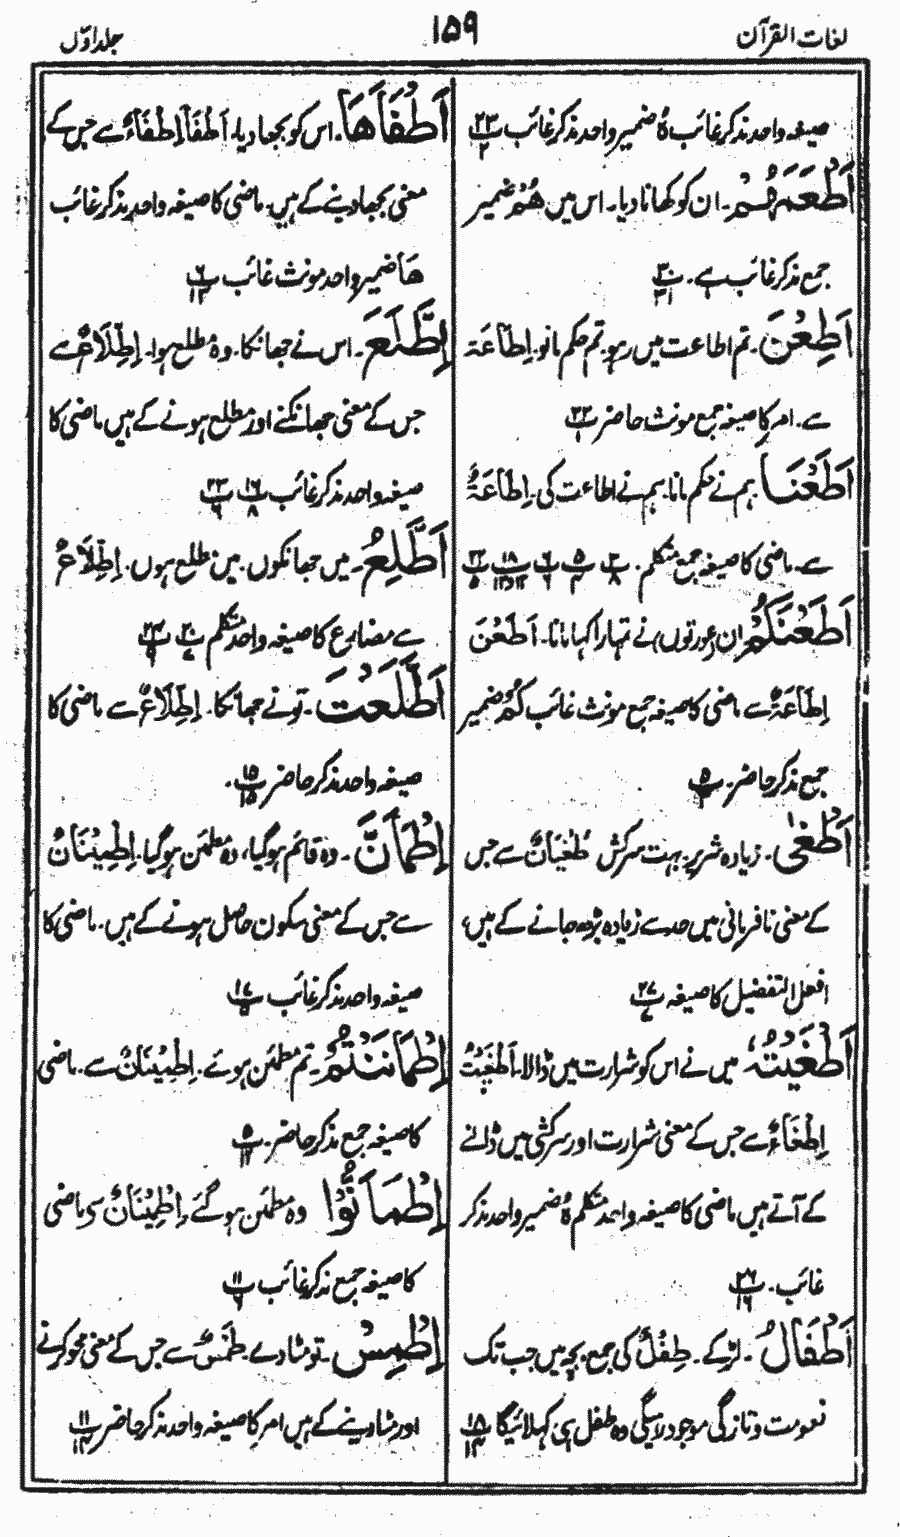 لغات القرآن
۱۵۹
جلد اوّل
صیغہ واحد مذکر غائب ہٗ ضمیر واحد مذکر غائب پ
اَطْعَمَهُمْ۔ ان کو کھانا دیا۔ اس میں هُمْ ضمیر
جمع مذکر غائب ہے۔ پ۳۰ ۳۱
اَطِعْنَ۔ تم اطاعت میں رہو۔ تم حکم مانو۔ اِطَاعَۃ
سے۔ امر کا صیغہ جمع مونث حاضر پ۲۲ ۱
اَطَعْنَا ہم نے حکم مانا۔ ہم نے اطاعت کی۔ اِطَاعَۃٌ
سے۔ ماضی کا صیغہ جمع متکلم۔ پ۳ ۸ پ۵ پ۶ پ۱۸ ۱۲و۱۳ پ۲۲ ۵
اَطَعْنَكُمْ ان (عورتوں) نے تمہارا کہا مانا۔ اَطَعْنَ
اِطَاعَۃٌ سے ماضی کا صیغہ جمع مونث غائب کُمْ ضمیر
جمع مذکر حاضر۔ پ۵
اَطْغٰی۔ زیادہ شریر۔ بہت سرکش طُغْیَانٌ سے جس
کے معنی نافرمانی میں حد سے زیادہ بڑھ جانے کے ہیں،
افعل التفضیل کا صیغہ پ۲۷ ۷
اَطْغَيْتُهٗ میں نے اس کو شرارت میں ڈالا۔ اَطْغَیْتُ
اِطْغَاءٌ سے جس کے معنی شرارت اور سرکشی میں ڈالنے
کے آتے ہیں ماضی کا صیغہ واحد متکلم ہٗ ضمیر واحد مذکر
غائب۔ پ۲۶ ۱۶
اَطْفَالُ۔ لڑکے۔ طِفْلٌ کی جمع۔ بچہ میں جب تک
نعومت و تازگی موجود رہیگی وہ طفل ہی کہلائیگا پ۱۸ ۱۴
اَطْفَأَهَا۔ اس کو بجھا دیا۔ اَطْفَأَ اِطْفَاءٌ سے جس کے
معنی بجھا دینے کے ہیں۔ ماضی کا صیغہ واحد مذکر غائب
ھَا ضمیر واحد مونث غائب پ۶ ۱۳
اِطَّلَعَ۔ اس نے جھانکا۔ وہ مطلع ہوا۔ اِطِّلَاعٌ سے
جس کے معنی جھانکنے اور مطلع ہونے کے ہیں ماضی کا
صیغہ واحد مذکر غائب پ۱۶ ۸ پ۲۳ ۶
اَطَّلِعُ۔ میں جھانکوں۔ میں مطلع ہوں۔ اِطِّلَاعٌ
سے مضارع کا صیغہ واحد متکلم پ۲۰ ۷ پ۲۴ ۹
اَطَّلَعْتَ۔ تو نے جھانکا۔ اِطِّلَاعٌ سے ماضی کا
صیغہ واحد مذکر حاضر پ۱۵ ۱۵۔
اِطْمَأَنَّ۔ وہ قائم ہوگیا، وہ مطمئن ہوگیا۔ اِطْمِیْنَانٌ
سے جس کے معنی سکون حاصل ہونے کے ہیں۔ ماضی کا
صیغہ واحد مذکر غائب پ۱۷
اِطْمَأْنَنْتُمْ۔ تم مطمئن ہوئے۔ اِطْمِیْنَانٌ سے۔ ماضی
کا صیغہ جمع مذکر حاضر۔ پ۵ ۱۲
اِطْمَأَنُّوْا وہ مطمئن ہوگئے۔ اِطْمِیْنَانٌ سے ماضی
کا صیغہ جمع مذکر غائب پ۱۱ ۶
اِطْمِسْ۔ تو مٹا دے۔ طَمْسٌ سے جس کے معنی محو کرنے
اور مٹا دینے کے ہیں امر کا صیغہ واحد مذکر حاضر پ۱۱ ۱۴